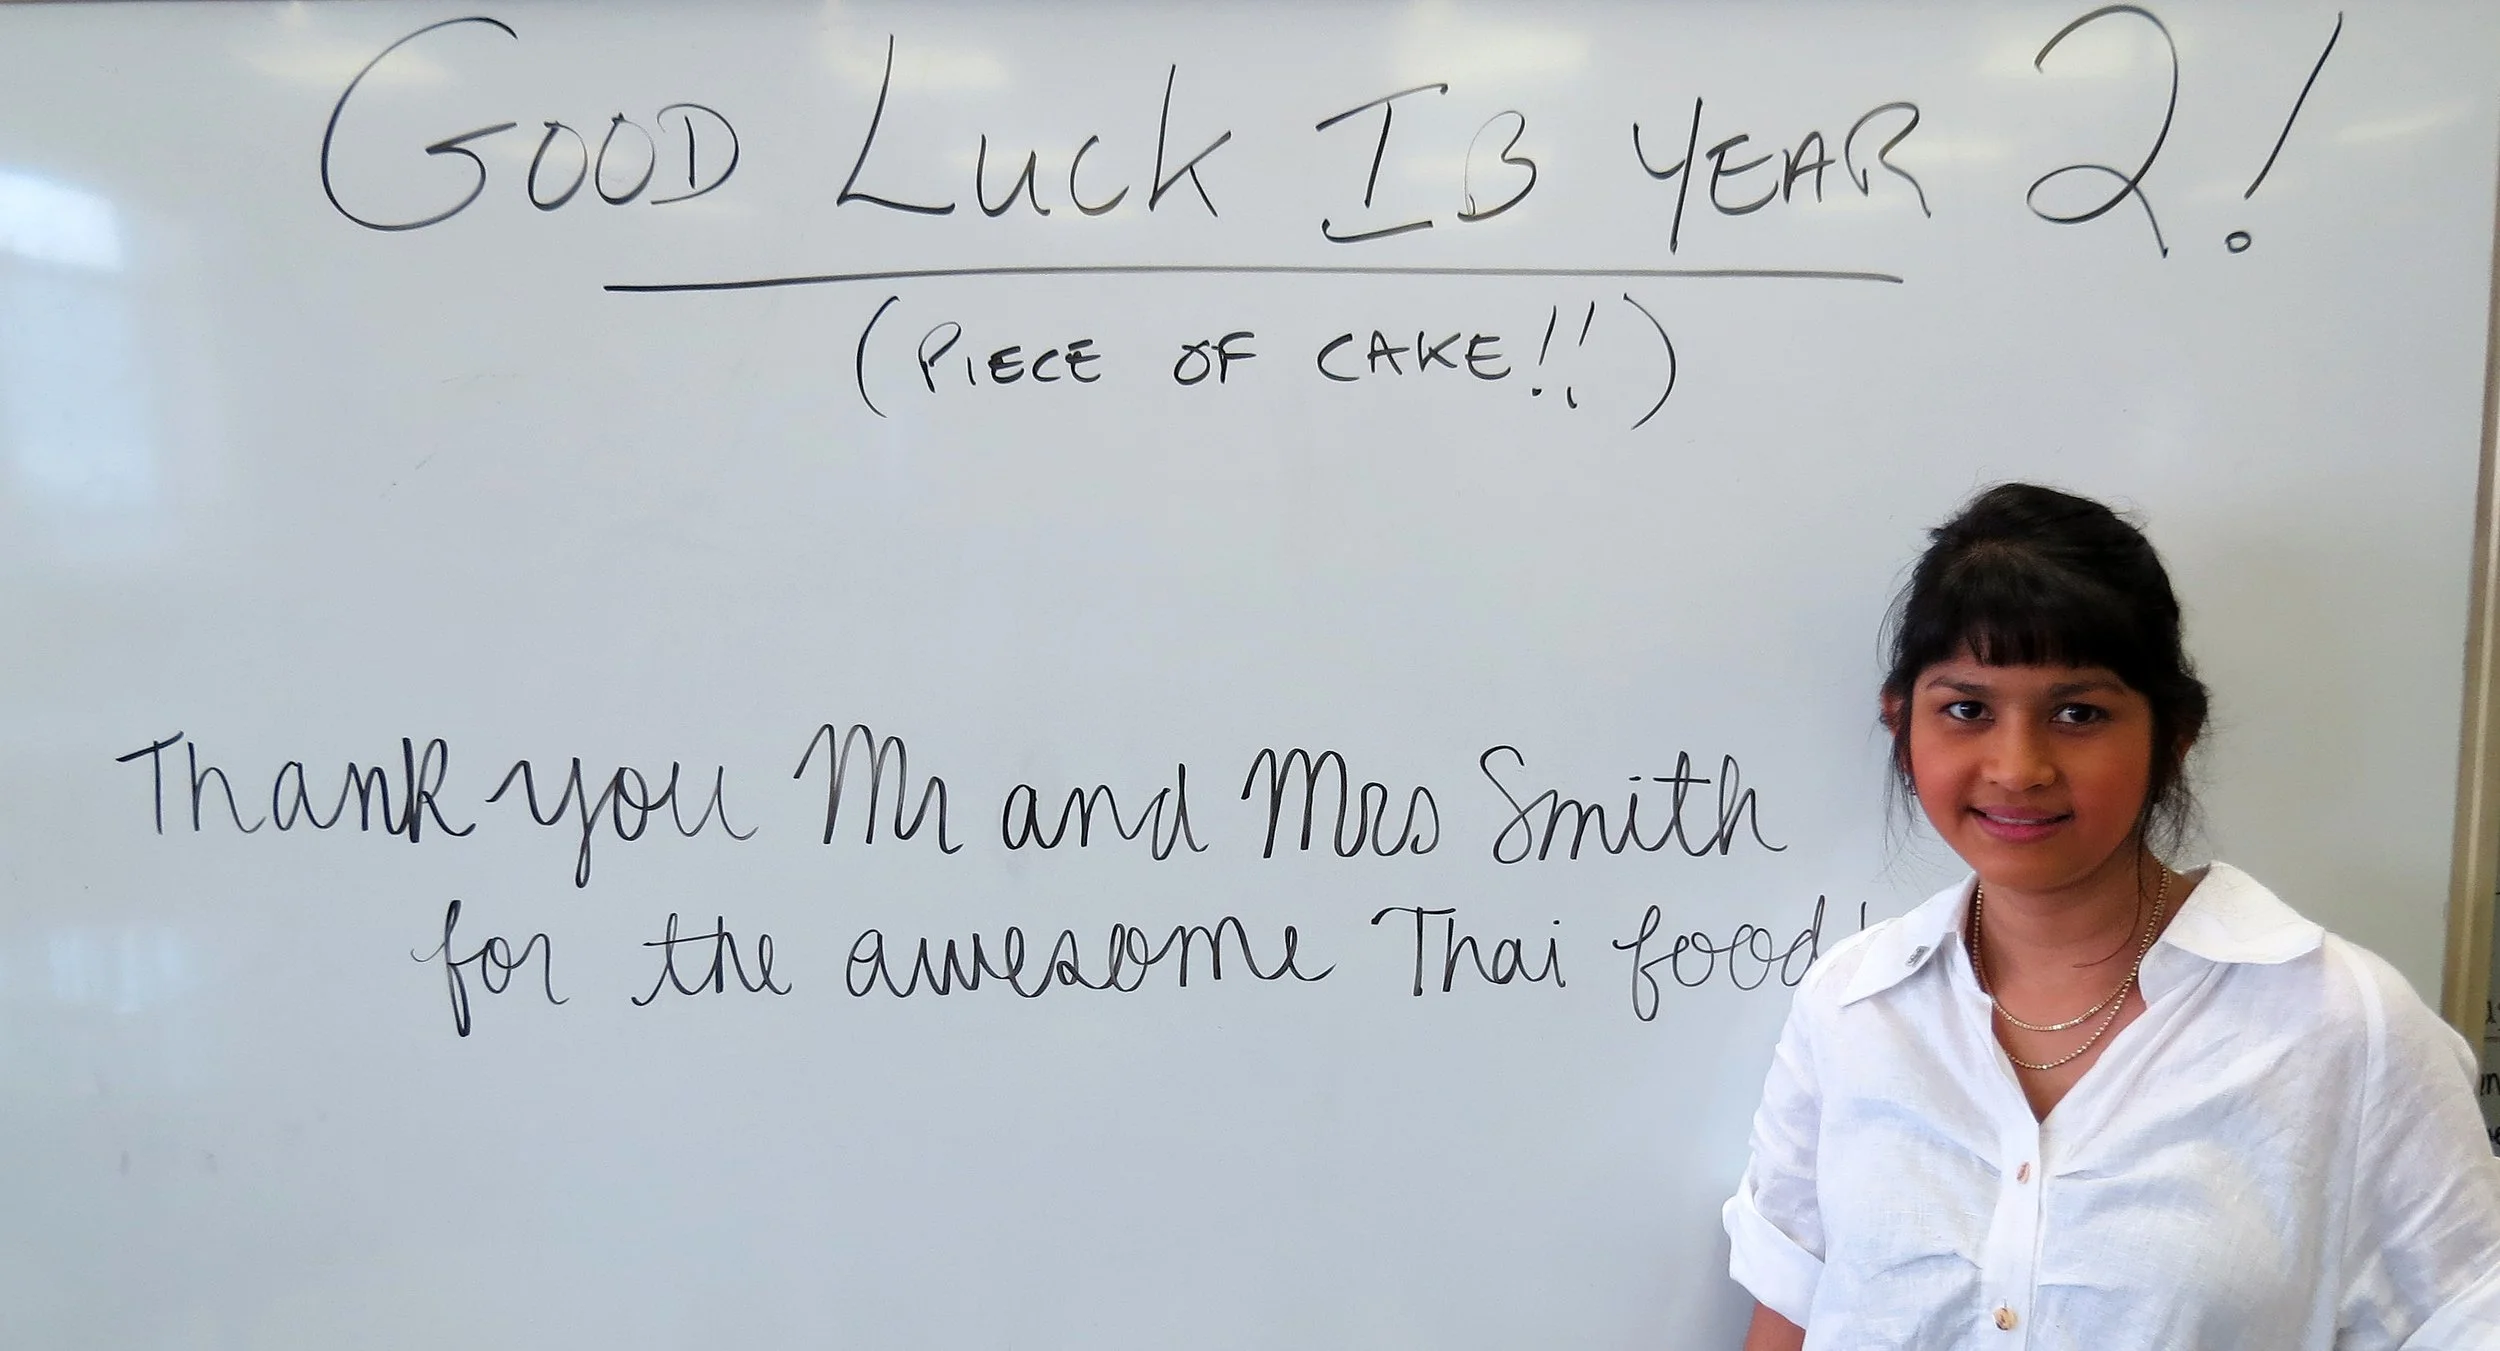 GOOD LUCK IB YEAR 2!
(PIECE OF CAKE!!)
Thank you Mr and Mrs Smith
for the awesome Thai food!